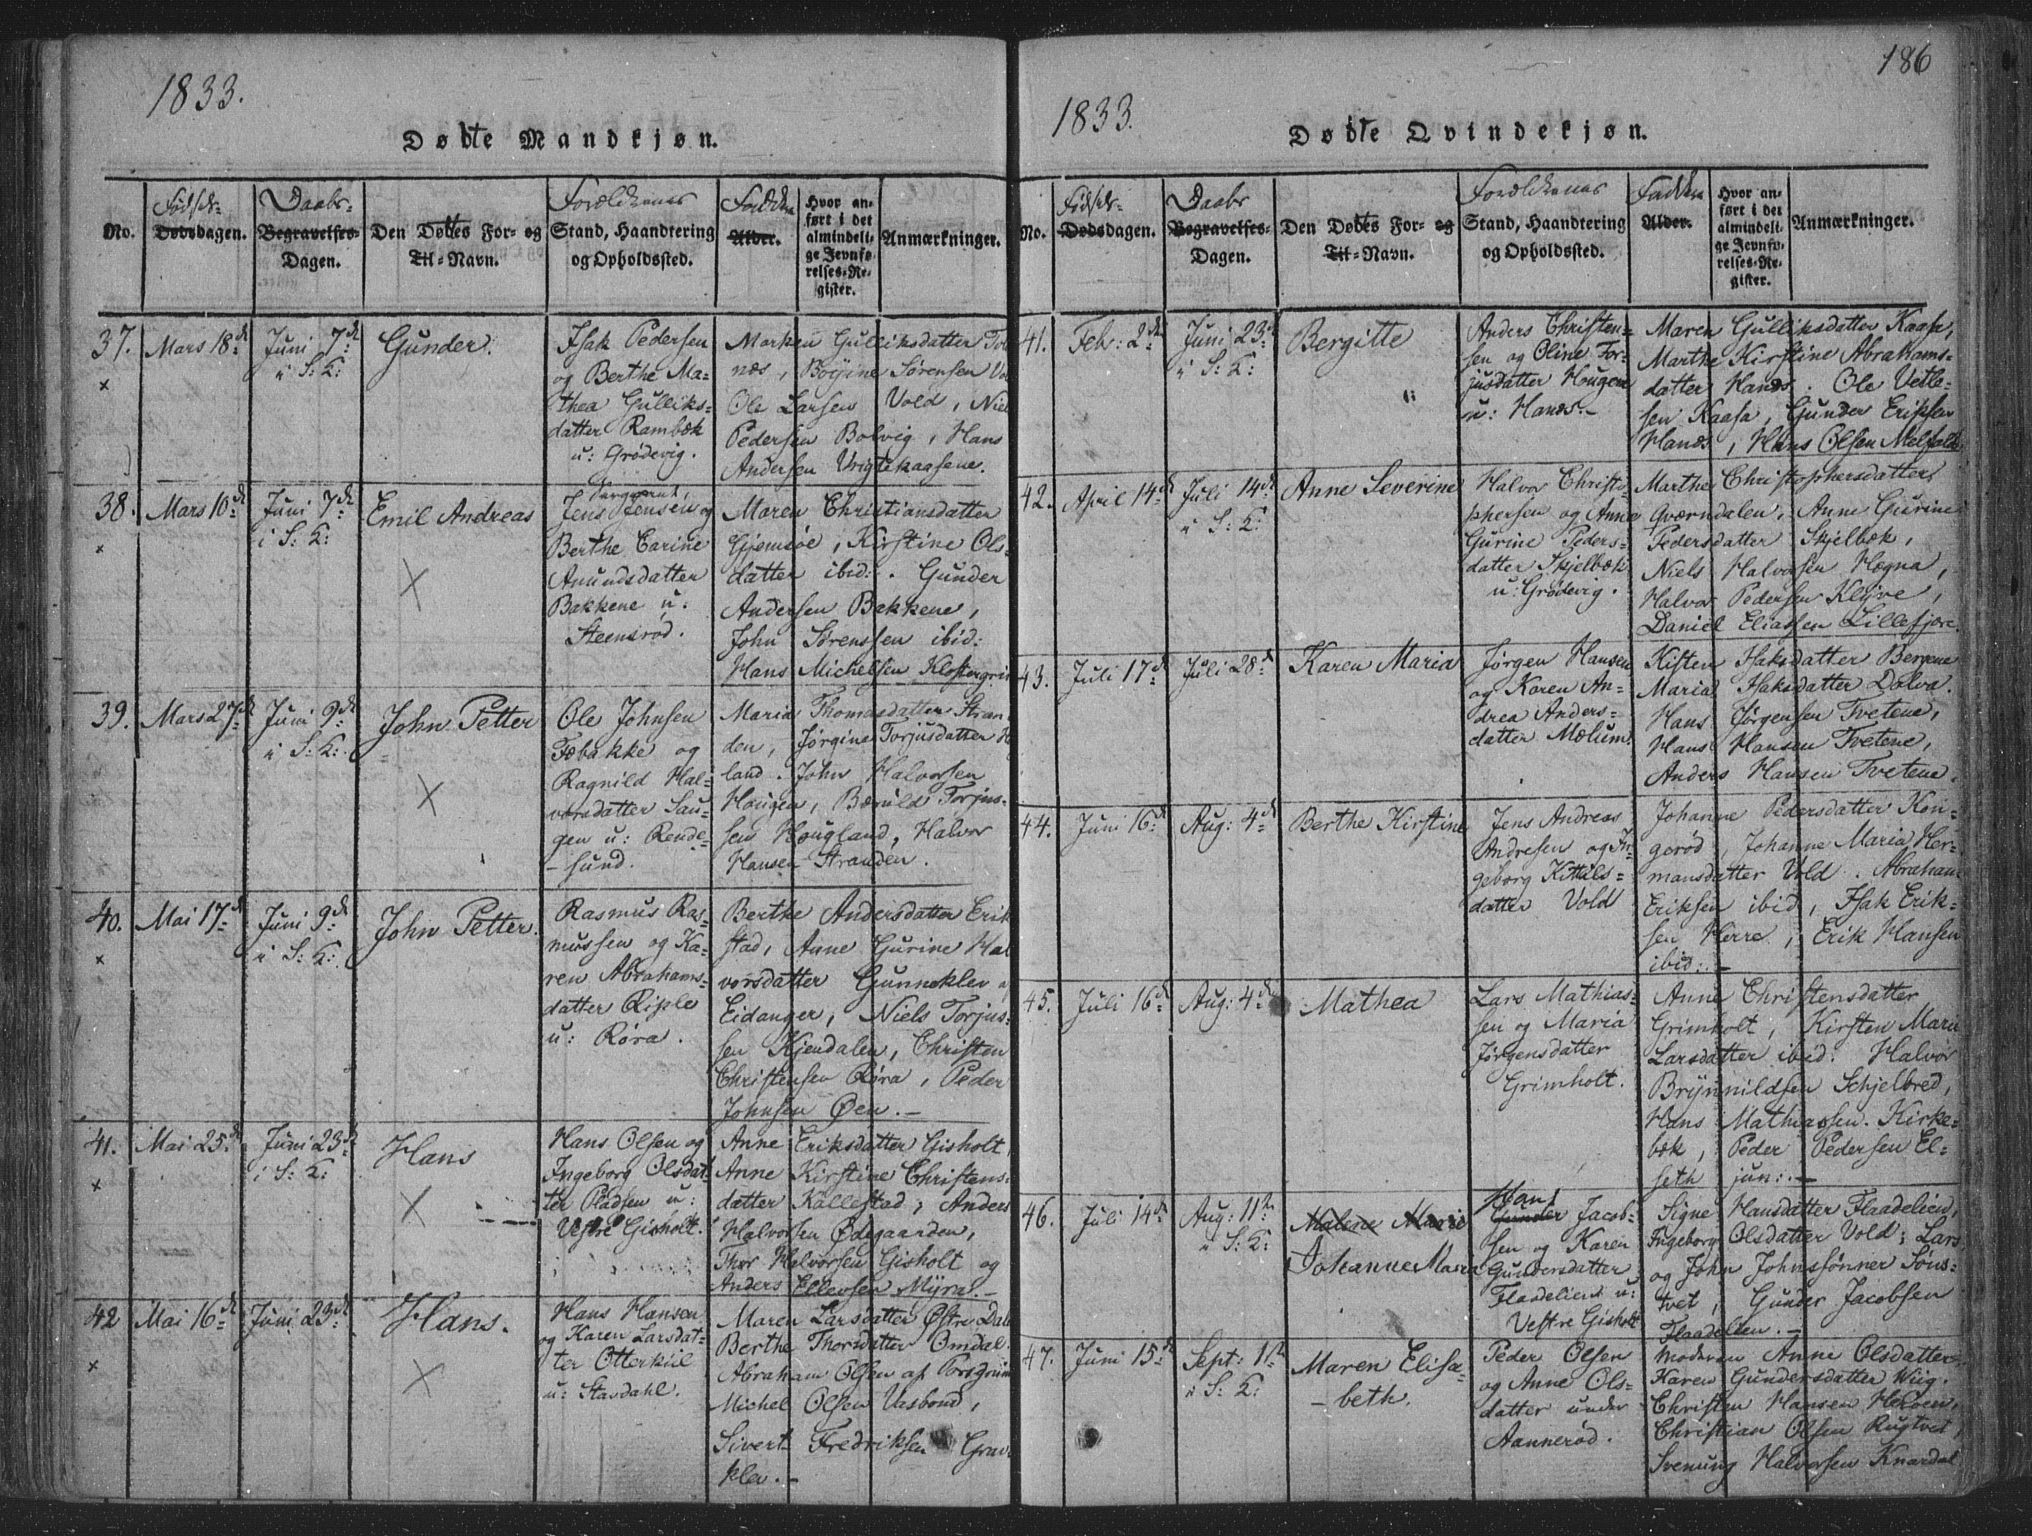 1833.
Døbte Mandkjøn.
No.
Fødsels-
Dødsdagen.
Daabs-
Begravelses-
Dagen.
Den Døbtes For- og
Til-Navn.
Forældrenes
Stand, Haandtering
og Opholdssted.
Fadderne
Alder.
Hvor an-
ført i det
almindeli-
ge Jevnfø-
relses-Re-
gister.
Anmærkninger.
37. Mars 18de
Juni 7de
i S: K:
Gunder.
Isak Pedersen
og Berthe Ma-
thea Gulliks-
datter Rambæk
u: Grødevig.
Marken Gulliksdatter
næs, Boÿine Sørensen
Ole Larsen Vold, Niels
Pedersen Bolvig, Hans
Andersen Vrigtekaasene.
38. Mars 10de
Juni 7de
i S: K:
Emil Andreas
Sergeant,
Jens Jensen og
Berthe Carine
Amundsdatter
Bakkene u:
Steensrød.
Maren Christiansdatter
Gjemsøe, Kirstine Ols-
datter ibid:. Gunder
Andersen Bakkene,
John Sørenssen ibid:
Hans Michelsen Klostergrin
39. Mars 27de
Juni 9de
i S: K:
John Petter
Ole Johnsen
Fæbakke og
Ragnild Hal-
vorsdatter Sau-
gen u: Rønde-
sund.
Maria Thomasdatter Stran-
den, Jørgine Torjusdatter
land. John Halvorsen
Hougen, Bæruld Torjus-
sen Hougland, Halvor
Hansen Stranden.
40. Mai 17de
Juni 9de
i S: K:
John Petter.
Rasmus Ras-
mussen og Ka-
ren Abrahams-
datter Risple
u: Røra.
Berthe Andersdatter Erik
stad, Anne Gurine Hal
vorsdatter Gunneklev
Eidanger, Niels Torjus-
sen Kjendalen, Christen
Christensen Røra, Peder
Johnsen Øen.-
41. Mai 25de
Juni 23de
i S: K:
Hans
Hans Olsen og
Ingeborg Olsdat-
ter Pladsen u:
Vestre Gisholt.
Anne Eriksdatter Gisholt,
Anne Kirstine Christens-
datter Kallestad, Anders
Halvorsen Ødegaarden,
Thor Halvorsen Gisholt og
Anders Ellevsen Mÿra.-
42 Mai 16de
Juni 23de
Hans.
Hans Hansen
og Karen Larsdat-
ter Otterkiil
u: Stavdahl.
Maren Larsdatter Østre Dal
Berthe Thorsdatter Omdal.
Abraham Olsen af Porsgrun
Michel Olsen Vasbond,
Sivert Fredriksen Grav-
klev.-
186
1833.
Døbte Qvindekjøn.
No.
Fødsels-
Dødsdagen.
Daabs
Begravelses-
Dagen.
Den Døbtes For- og
Til-Navn.
Forældrenes
Stand, Haandtering
og Opholdssted.
Fadderne
Alder.
Hvor an-
ført i det
almindeli-
ge Jevnfø-
relses-Re-
gister.
Anmærkninger.
41. Feb: 2de
Juni 23de
i S: K:
Bergitte
Anders Christen-
sen og Oline Tor-
jusdatter Hougen
u: Hanøs.-
Maren Gulliksdatter Kaasa,
Marthe Kirstine Abrahams-
datter Hanøs. Ole Vetle-
sen Kaasa, Gunder Eriksen
Hanøs, Hans Olsen Melfald
42. April 14de
Juli 14de
i S: K:
Anne Severine
Halvor Christo-
phersen og Anne
Gurine Peders-
datter Skjelbæk
u: Grødevig.
Marthe Christophersdatter
Qværndalen, Anne Gurine
Pedersdatter Skjelbæk,
Niels Halvorsen Hægna,
Halvor Pedersen Klÿve,
Daniel Eliassen Lillefjære.
43. Juli 17de
Juli 28de
Karen Maria
Jørgen Hansen
og Karen An-
drea Anders-
datter Mælum.
Kisten Isaksdatter Bergene
Maria Isaksdatter Dolva.
Hans Jørgensen Tvetene,
Hans Hansen Tvetene,
Anders Hansen Tvetene.
44. Juni 16de
Aug: 4de
Berthe Kirstine
Jens Andreas
Andresen og In-
geborg Kittils-
datter Vold
Johanne Pedersdatter Kon-
gerød, Johanne Maria Her-
mansdatter Vold. Abraham
Eriksen ibid, Isak Erik-
sen Herre, Erik Hansen
ibid:.-
45. Juli 16de
Aug: 4de
Mathea
Lars Mathias-
sen og Maria
Jørgensdatter
Grimholt.
Anne Christensdatter
Grimholt, Kirsten Marie
Larsdatter ibid. Halvor
Brÿnnildsen Schjelbred,
Hans Mathiassen Kirke-
bæk, Peder Pedersen El-
seth jun:.-
46. Juli 14de
Aug: 11te
i S: K:
Malene Marie
Johanne Maria
Hans
Gunder Jacob-
sen og Karen
Gundersdatter
Flaadelien u:
Vestre Gisholt
Signe Hansdatter Flaadelien,
Ingeborg Olsdatter Vold; Lars
og John Johnssønner Søns-
tvet, Gunder Jacobsen
Flaadelien.-
47. Juni 15de
Sept: 1ste
i S: K:
Maren Elisa-
beth.
Peder Olsen
og Anne Ols-
datter under
Aannerød.
Moderen Anne Olsdatter
Karen Gundersdatter Wiig.
Christen Hansen Herøen,
Christian Olsen Rugtvet,
Svenung Halvorsen Knardal